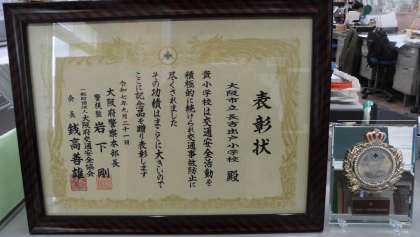 表彰状
大阪市立 長吉出戸小学校 殿
貴小学校は交通安全活動を
積極的に続けられ交通事故防止に
尽くされました
その功績はまことに大きいので
ここに記念品を贈り表彰します
令和七年九月二十一日
大阪府警察本部長
警視監 岩下 剛
一般財団法人大阪府交通安全協会
会長 銭高善雄